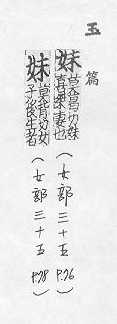 玉篇
妺 莫曷切妺喜桀妻也 (女部三十五 P.76)
妹 莫背切女子後生者 (女部三十五 P.78)